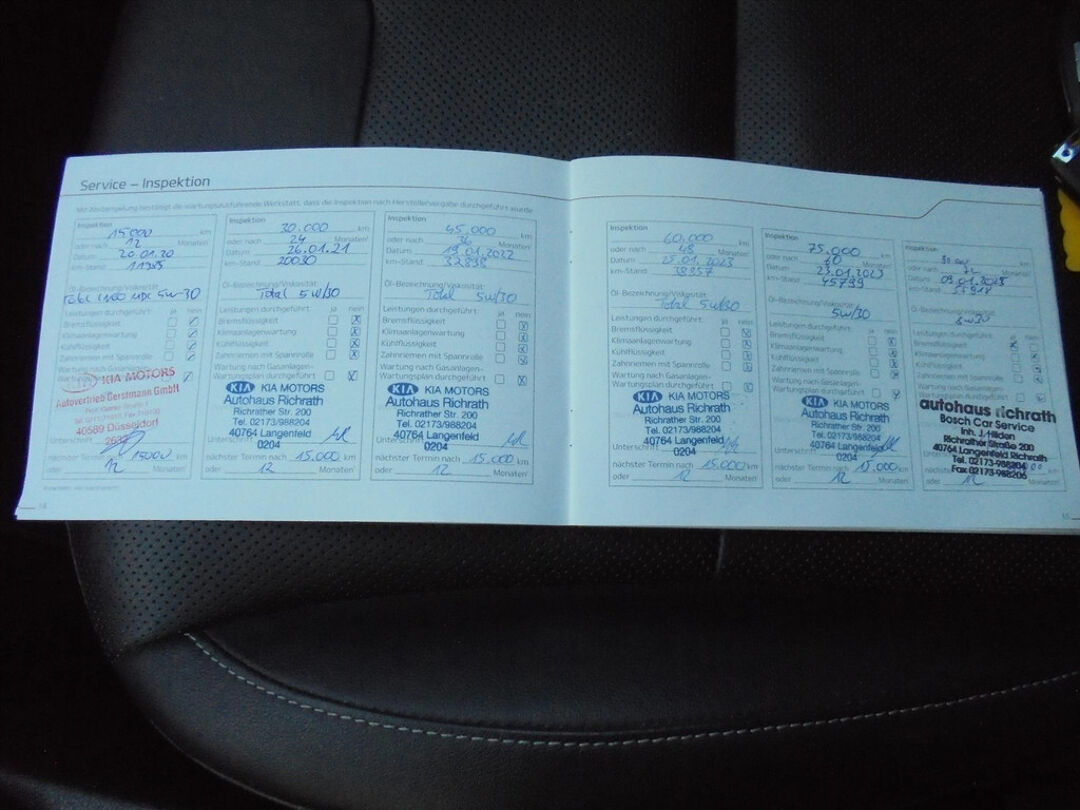 Service – Inspektion
Mit Abstempelung bestätigt die wartungsausführende Werkstatt, dass die Inspektion nach Herstellervorgabe durchgeführt wurde
Inspektion
15000 km
oder nach 12 Monaten
Datum 20.01.20
km-Stand
Öl-Bezeichnung/Viskosität
5W-30
Leistungen durchgeführt: ja nein
Bremsflüssigkeit
Klimaanlagenwartung
Kühlflüssigkeit
Zahnriemen mit Spannrolle
Wartung nach Gasanlagen-
KIA MOTORS
Autovertrieb Gerstmann GmbH
40589 Düsseldorf
Unterschrift
nächster Termin nach 15000 km
oder 12 Monaten
Inspektion
30.000 km
oder nach 24 Monaten
Datum 26.01.21
km-Stand 20030
Öl-Bezeichnung/Viskosität
Total 5W/30
Leistungen durchgeführt: ja nein
Bremsflüssigkeit
Klimaanlagenwartung
Kühlflüssigkeit
Zahnriemen mit Spannrolle
Wartung nach Gasanlagen-
Wartungsplan durchgeführt
KIA KIA MOTORS
Autohaus Richrath
Richrather Str. 200
Tel. 02173/988204
40764 Langenfeld
Unterschrift 0204
nächster Termin nach 15.000 km
oder 12 Monaten
Inspektion
45.000 km
oder nach 36 Monaten
Datum 19.01.2022
km-Stand 32898
Öl-Bezeichnung/Viskosität
Total 5W/30
Leistungen durchgeführt: ja nein
Bremsflüssigkeit
Klimaanlagenwartung
Kühlflüssigkeit
Zahnriemen mit Spannrolle
Wartung nach Gasanlagen-
Wartungsplan durchgeführt
KIA KIA MOTORS
Autohaus Richrath
Richrather Str. 200
Tel. 02173/988204
40764 Langenfeld
Unterschrift 0204
nächster Termin nach 15.000 km
oder 12 Monaten
Inspektion
60.000 km
oder nach 48 Monaten
Datum 25.01.2023
km-Stand 38357
Öl-Bezeichnung/Viskosität
Total 5W/30
Leistungen durchgeführt: ja nein
Bremsflüssigkeit
Klimaanlagenwartung
Kühlflüssigkeit
Zahnriemen mit Spannrolle
Wartung nach Gasanlagen-
Wartungsplan durchgeführt
KIA KIA MOTORS
Autohaus Richrath
Richrather Str. 200
Tel. 02173/988204
40764 Langenfeld
Unterschrift 0204
nächster Termin nach 15.000 km
oder 12 Monaten
Inspektion
75.000 km
oder nach 60 Monaten
Datum
km-Stand 45799
Öl-Bezeichnung/Viskosität
5W/30
Leistungen durchgeführt: ja nein
Bremsflüssigkeit
Klimaanlagenwartung
Kühlflüssigkeit
Zahnriemen mit Spannrolle
Wartung nach Gasanlagen-
Wartungsplan durchgeführt
KIA KIA MOTORS
Autohaus Richrath
Richrather Str. 200
Tel. 02173/988204
40764 Langenfeld
Unterschrift 0204
nächster Termin nach 15.000 km
oder 12 Monaten
Inspektion
km
oder nach 72 Monaten
Datum
km-Stand
Öl-Bezeichnung/Viskosität
Leistungen durchgeführt: ja nein
Bremsflüssigkeit
Klimaanlagenwartung
Kühlflüssigkeit
Zahnriemen mit Spannrolle
Wartung nach Gasanlagen-
autohaus richrath
Bosch Car Service
Inh. J. Hilden
Richrather Straße 200
40764 Langenfeld Richrath
Tel. 02173-988204
Fax 02173-988206
oder 12 Monaten